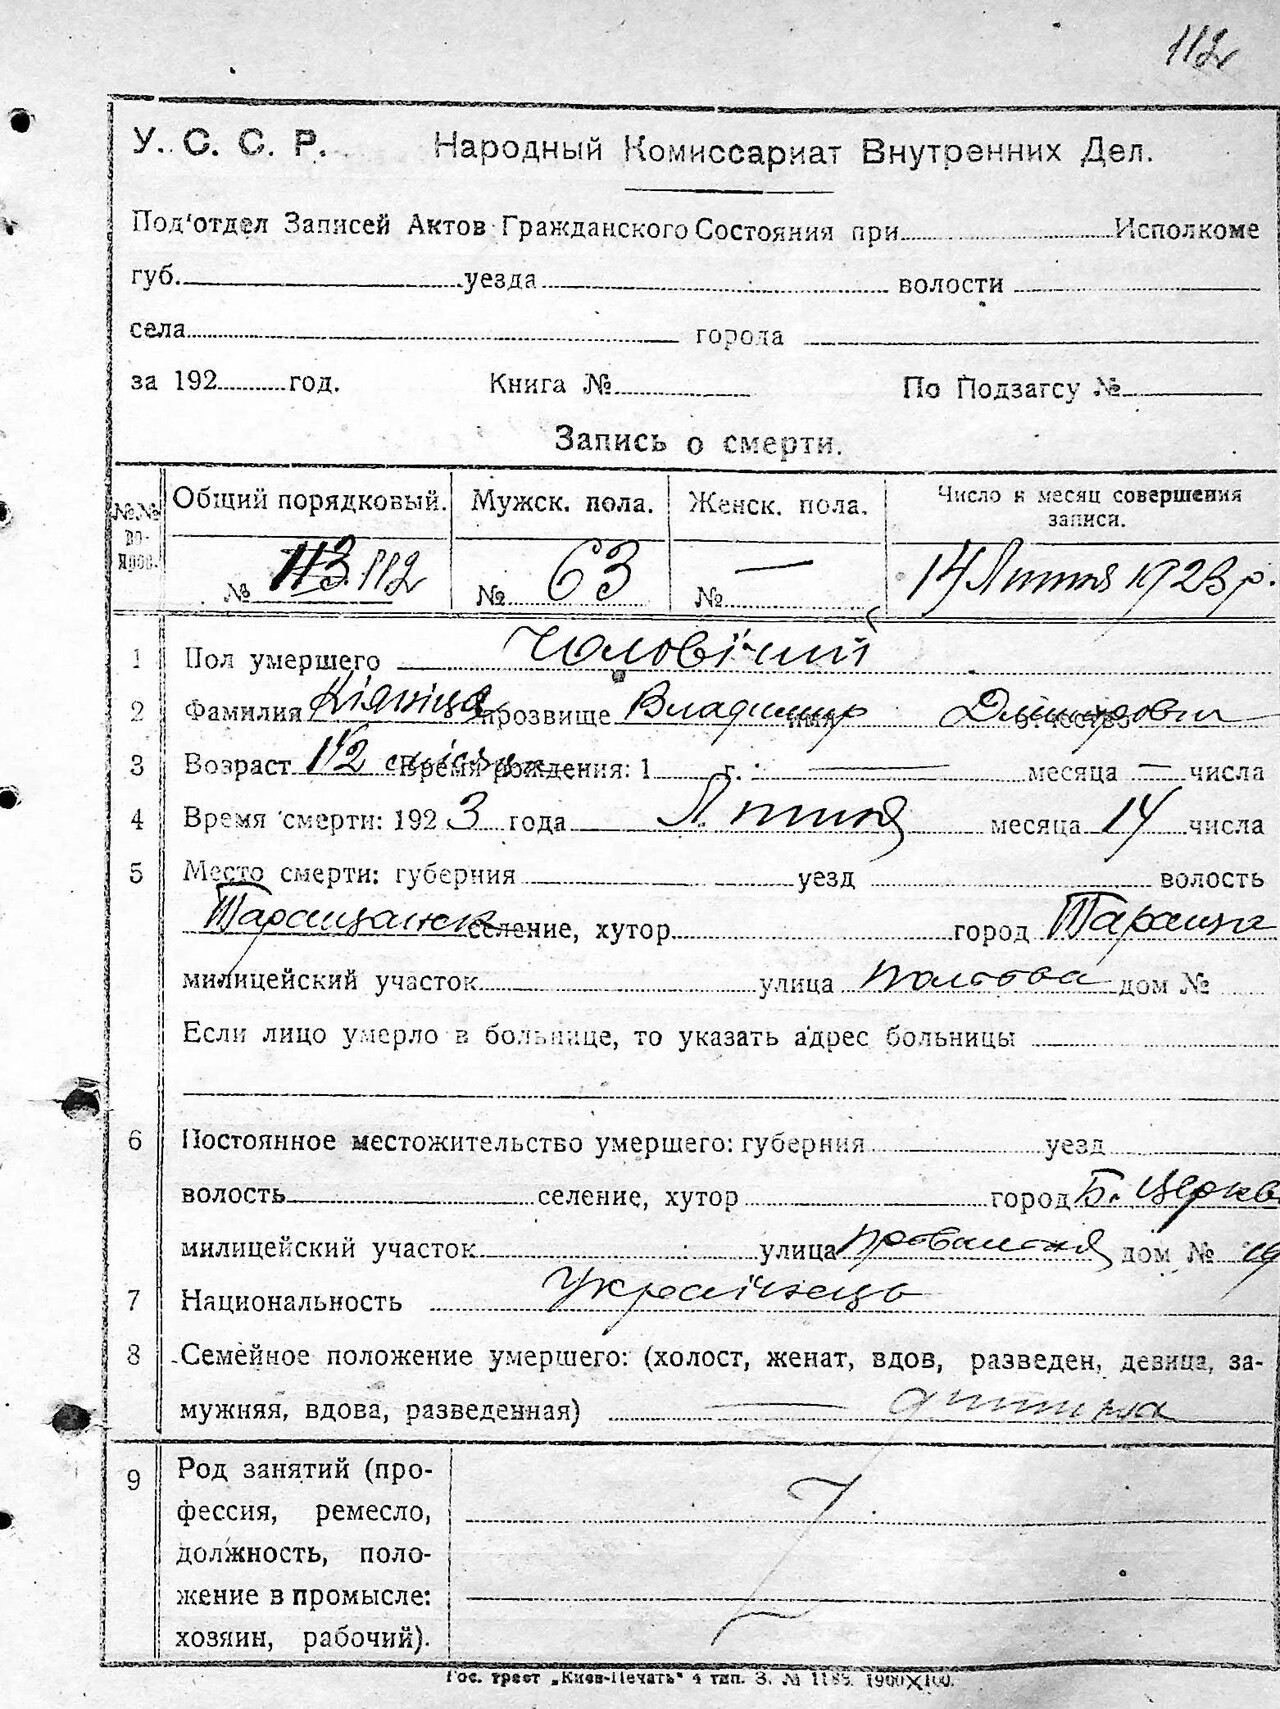 112
У. С. С. Р. Народный Комиссариат Внутренних Дел.
Под'отдел Записей Актов Гражданского Состояния при Исполкоме
губ. уезда волости
села города
за 192 год. Книга № По Подзагсу №
Запись о смерти.
№№ во-прос. Общий порядковый. Мужск. пола. Женск. пола. Число и месяц совершения записи.
№ 113 112 № 63 № — 14 Липня 1923 р.
1 Пол умершего Чоловічий
2 Фамилия Кіяниця прозвище Владимир имя Дмитрович отчество
3 Возраст 1/2 Время рождения: 1 г. — месяца — числа
4 Время смерти: 1923 года Липня месяца 14 числа
5 Место смерти: губерния уезд волость
Таращанск селение, хутор город Тараща
милицейский участок улица дом №
Если лицо умерло в больнице, то указать адрес больницы
6 Постоянное местожительство умершего: губерния уезд
волость селение, хутор город Б. Церква
милицейский участок улица дом № 19
7 Национальность Українець
8 Семейное положение умершего: (холост, женат, вдов, разведен, девица, за-
мужняя, вдова, разведенная) — дитина
9 Род занятий (про-
фессия, ремесло,
должность, поло-
жение в промысле:
хозяин, рабочий).
Гос. трест „Киев-Печать“ 4 тип. З. № 1185. 1900X100.